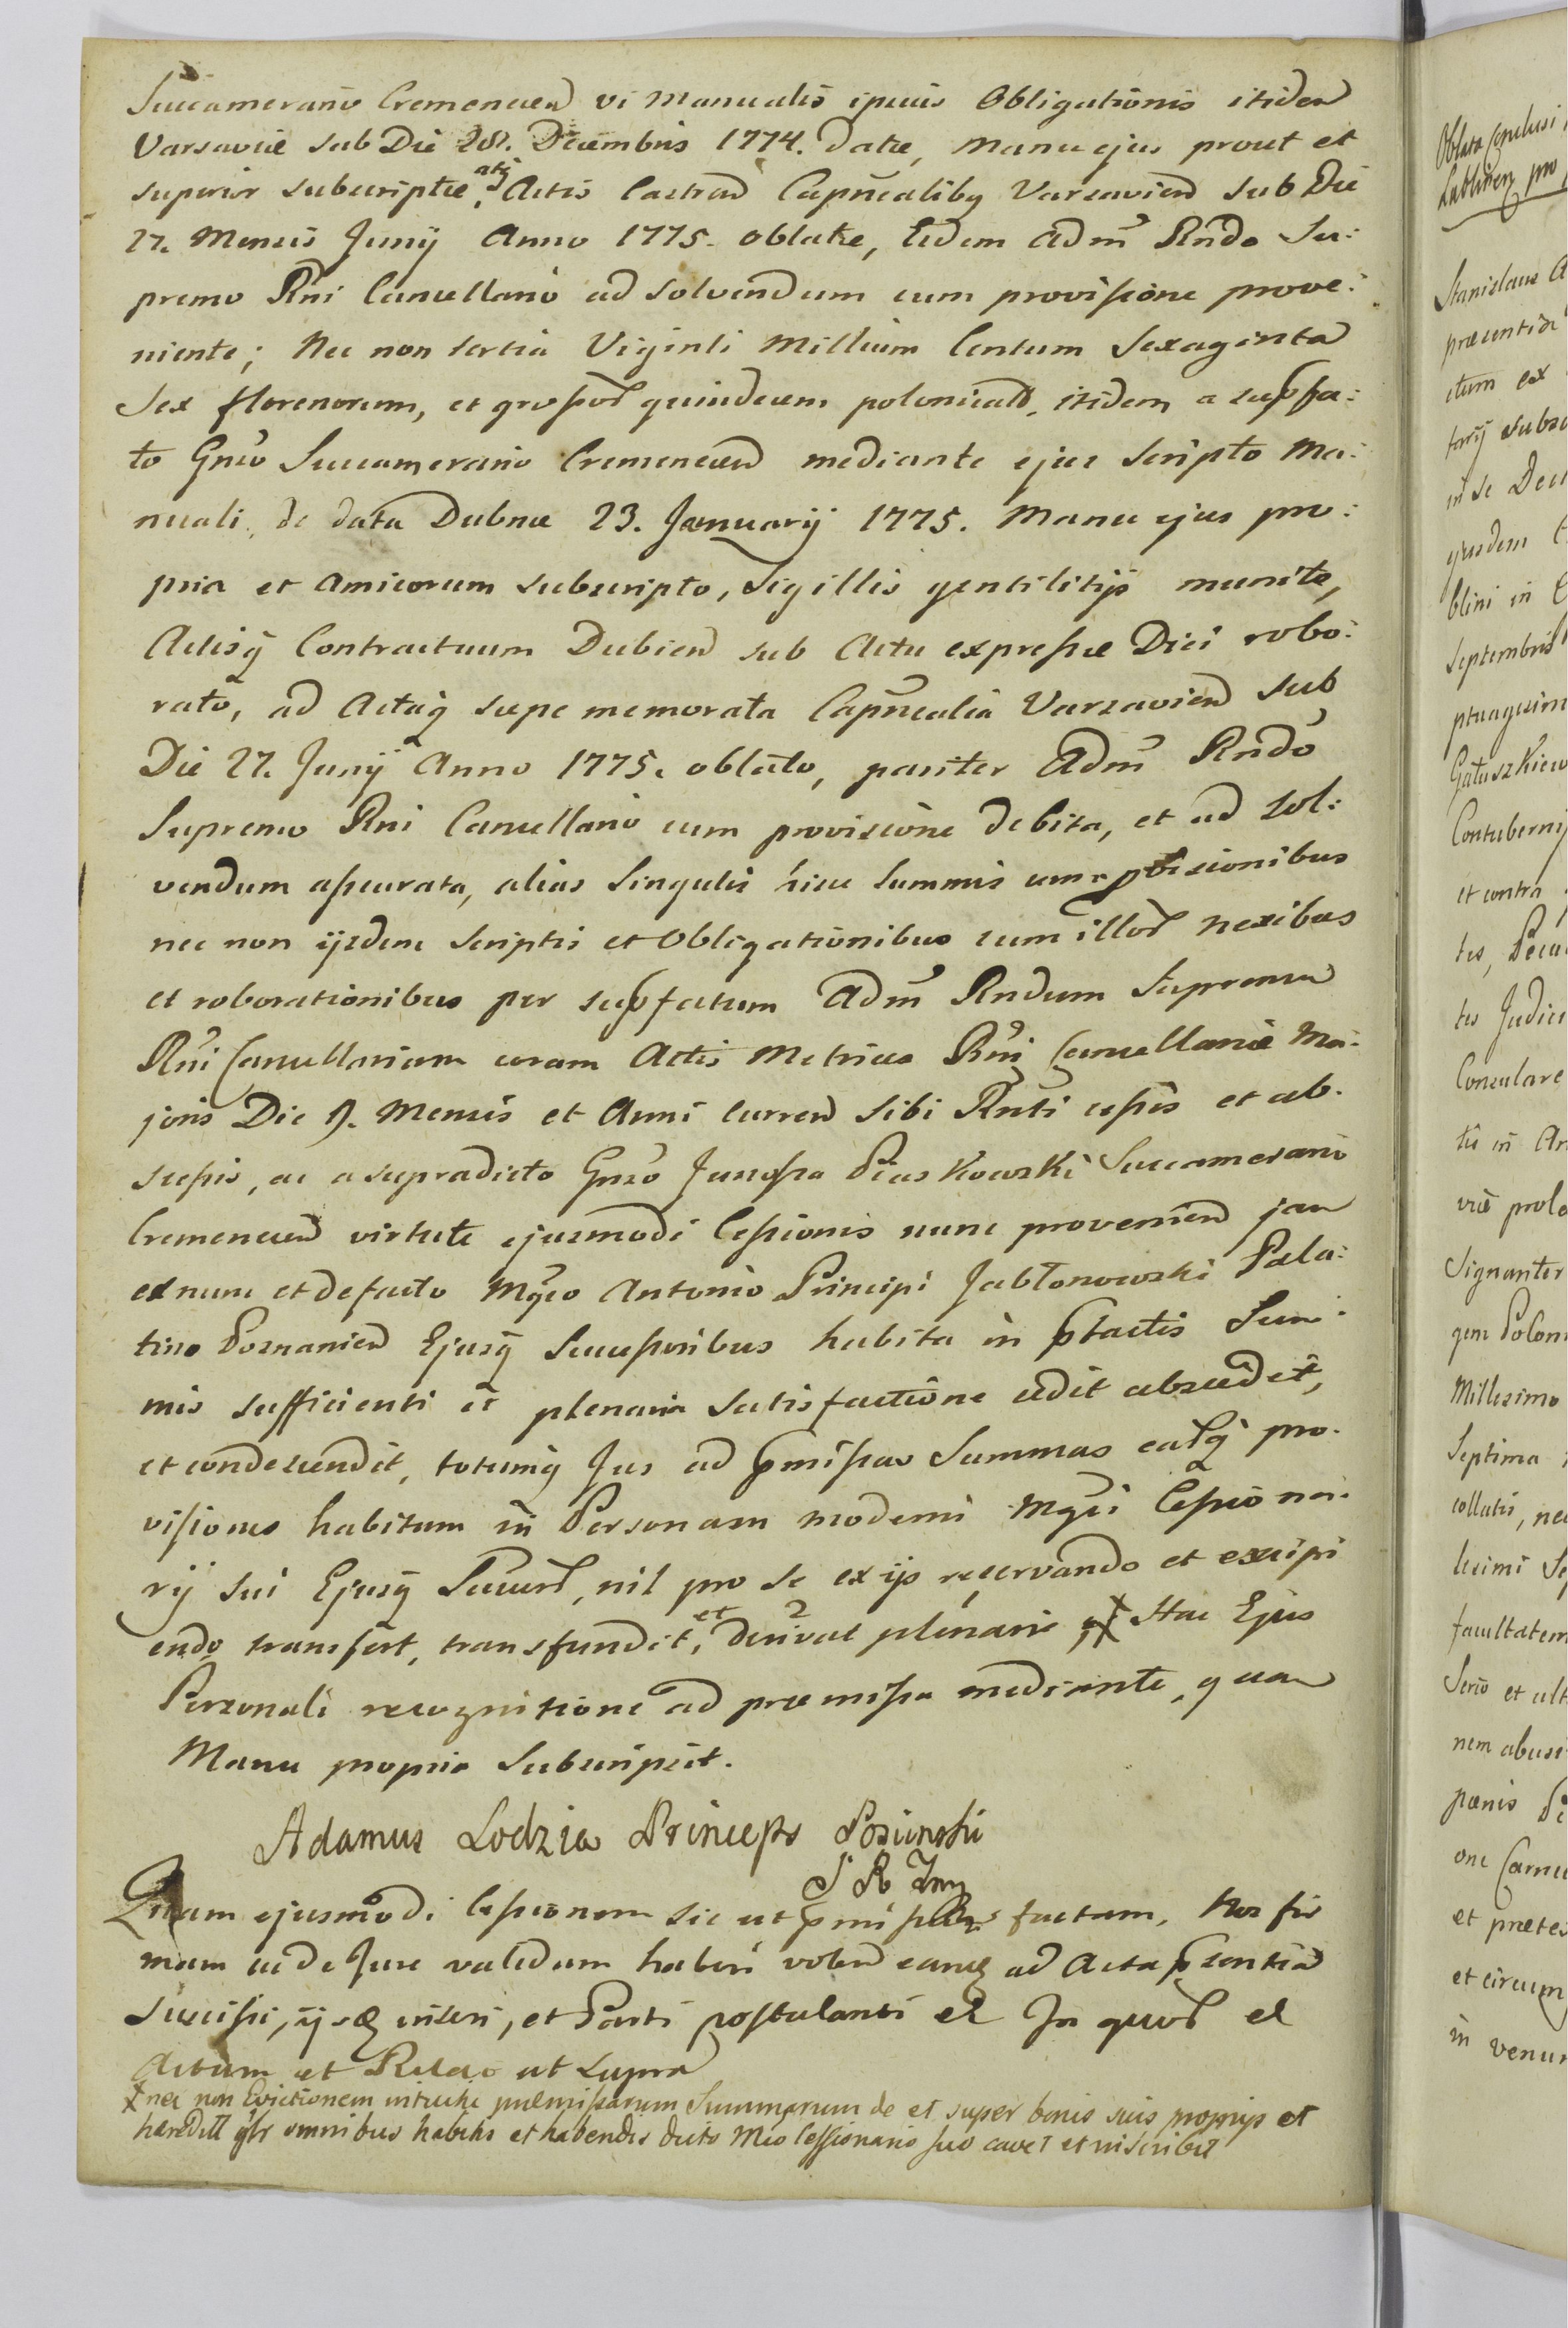 Succamerario Cremenecen vi Manualis ipsius Obligationis itidem
Varsaviæ sub Die 28. Decembris 1774. datæ, manu ejus prout et
superior subscriptæ, atq Actis Castren Capnealibq Varsavien sub Die
27. Mensis Junij Anno 1775. oblatæ, Eidem Adm Rndo Su:
premo Rni Cancellario ad solvendum cum provisione prove:
niente; Nec non tertia Viginti Millium Centum Sexaginta
Sex florenorum, et grossor quindecem polonical, itidem a supfa:
to Gnso Succamerario Cremenecen mediante ejus scripto Ma:
nuali, de data Dubnæ 23. Januarij 1775. Manu ejus pro:
pria et Amicorum subscripto, Sigillis gentilitijs munito,
Actisq Contractuum Dubien sub Actu expressæ Diei robo:
rato, ad Actaq sæpe memorata Capnealia Varsavien sub
Die 27. Junij Anno 1775. oblato, pariter Adm Rndo
Supremo Rni Cancellario cum provisione debita, et ad sol:
vendum assecurata, alias Singulis hisce Summis cum provisionibus
nec non ijsdem Scriptis et Obligationibus cum illor nexibus
et roborationibus per supfatum Adm Rndum Supremum
Rni Cancellarium coram Actis Metrices Rni Cancellariæ Ma:
joris Die 9. Mensis et Anni curren Sibi Rnti cessis et ab:
scessis, ac a supradicto Gnso Junosza Piaskowski Succamerario
Cremenecen virtute ejusmodi Cessionis nunc provenien jam
ex nunc et de facto Mgco Antonio Principi Jabłonowski Pala:
tino Posnanien Ejusq Successoribus habita in ptactis Sum:
mis sufficienti et plenaria Satisfactione cedit abscedit,
et condescendit, totumq Jus ad pmissas Summas earq pro:
visiones habitum in Personam moderni Mgci Cessiona:
rij sui Ejusq Succesr, nil pro se ex ijs reservando et excipi
endo transfert, transfundit, et derivat plenarie, Hac Ejus
Personali recognitione ad præmissa mediante, quam
Manu propria Subscripsit.
Adamus Lodzia Princeps Poninski
S R Jmy
Quam ejusmodi Cessionem sic ut pmissum factam, Nos fir
mam ac de Jure validam haberi volen eamq ad Acta psentia
Suscipi, ijsq inseri, et Parti postulanti et In quor et
Actum et Relatio ut Supra
nec non Evictionem intuitu præmissarum Summarum de et super bonis suis proprijs et
hæreditt gnlr omnibus habitis et habendis dicto Mco Cessionario suo cavet et inscribit
Oblata Conclusi
Lublinen pro
Stanislaus A
præsentibs
itum ex
tarij subsc
in se Decr
ejusdem
blini in C
Septembris
ptuagesim
Gałuszkiew
Contubernij
et contra
tes, Decre
tes Judici
Consulare
tis in Ar
viæ prola
Signanter
gem Polon
Millesimo
Septima
collatis, nec
lesimi Se
facultatem
Serio et ult
nem abusi
pœnis Pe
one Carne
et præter
et circum
in venun